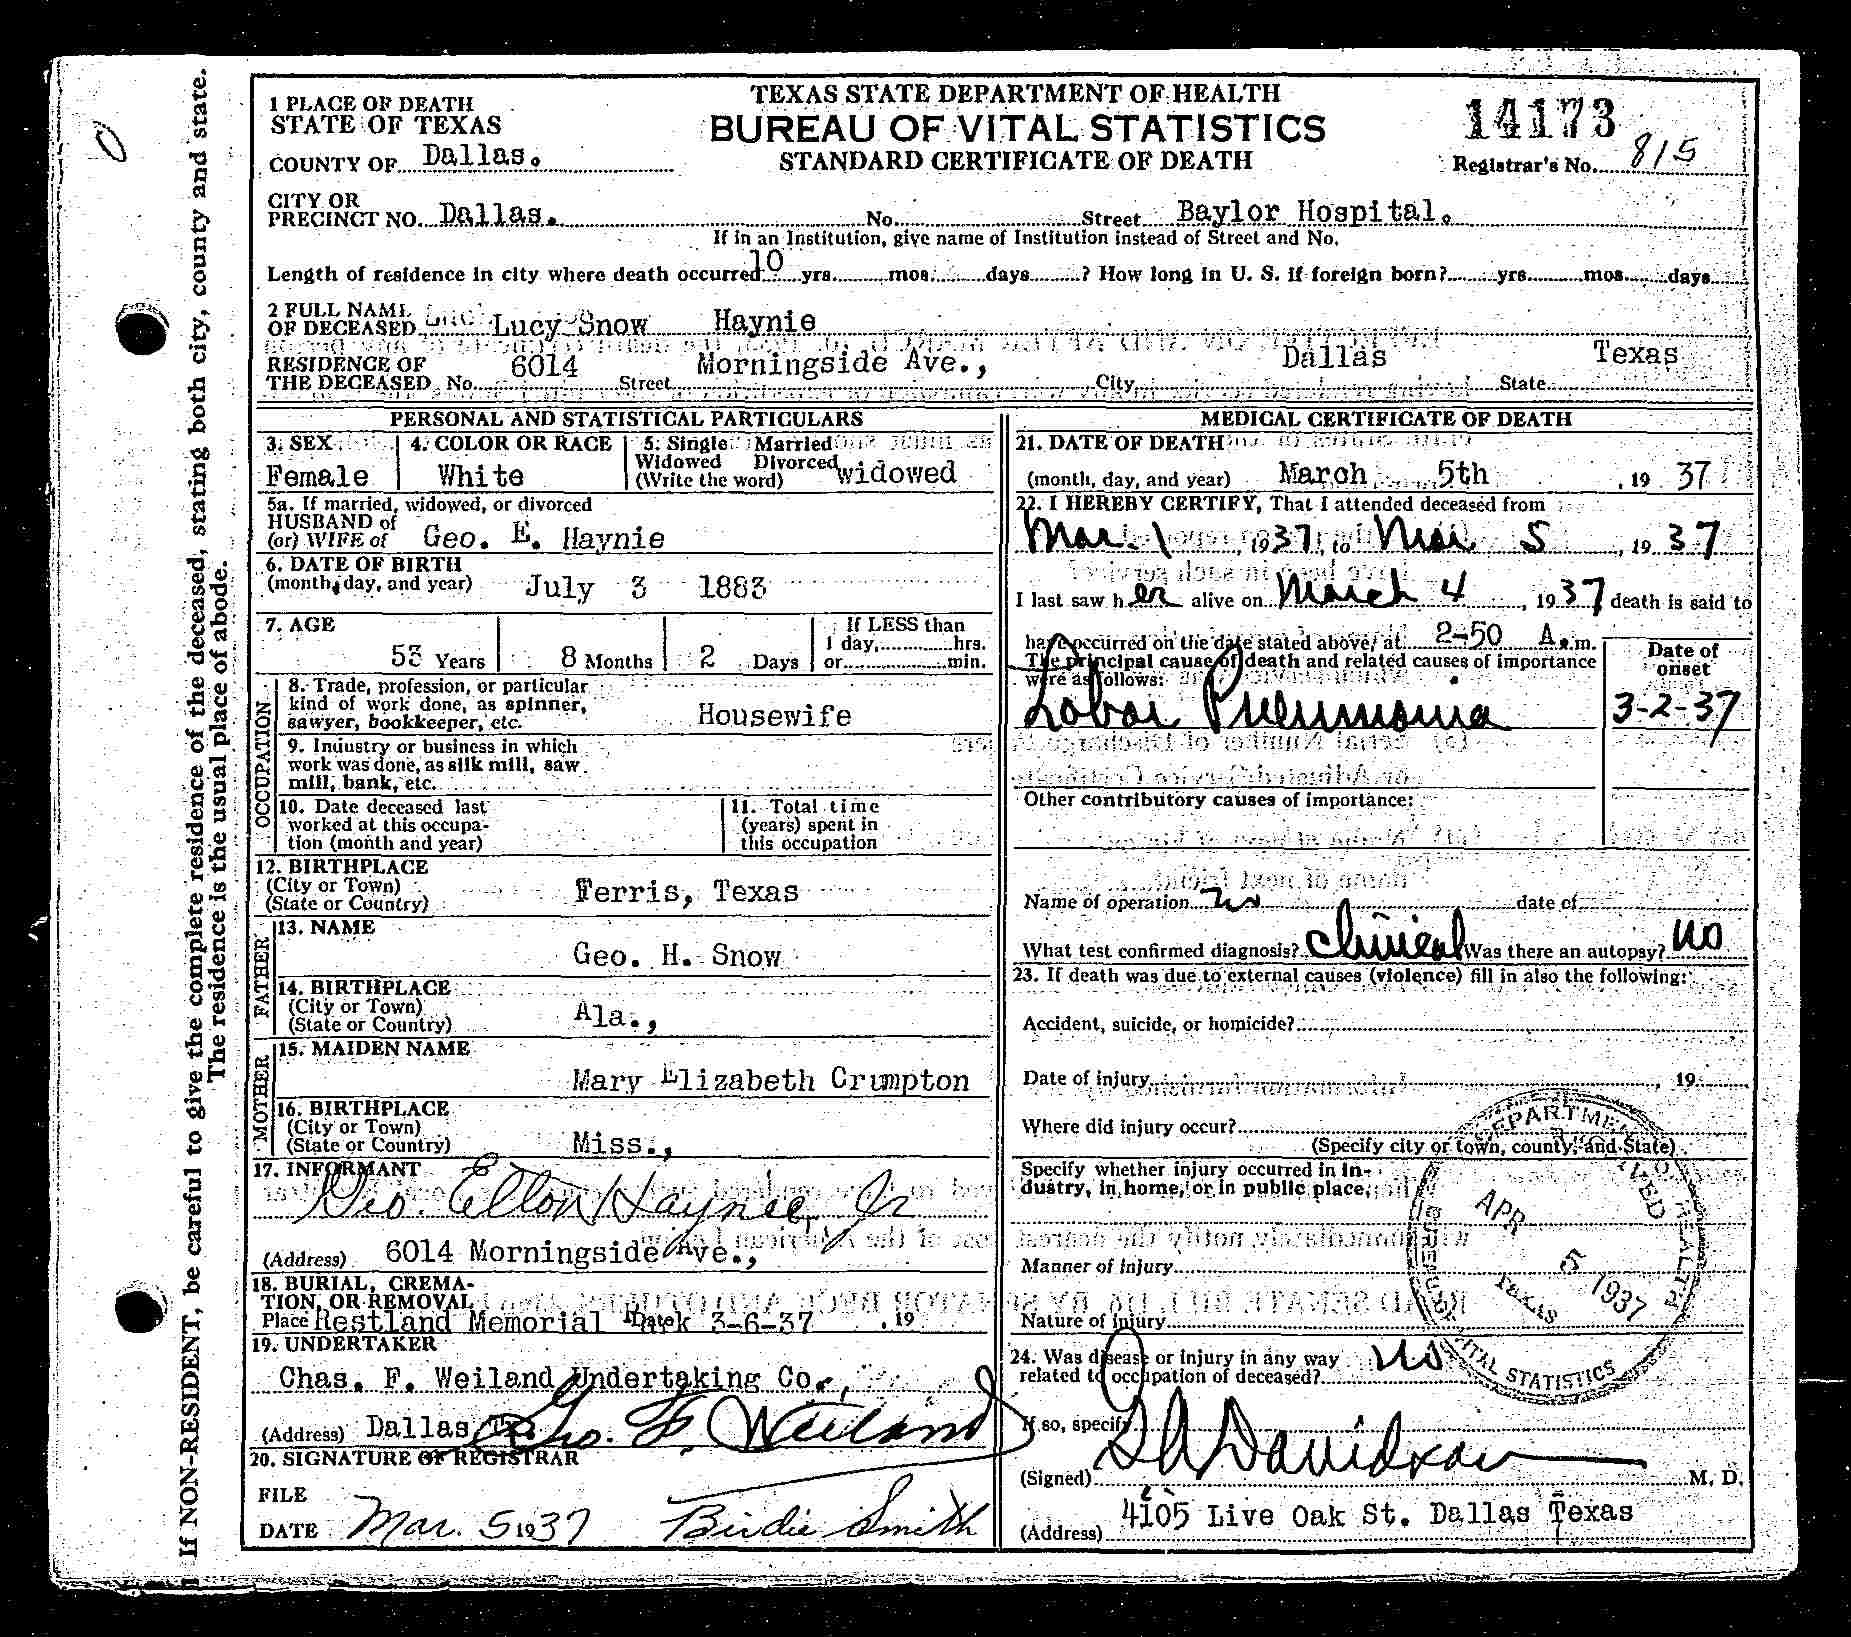 TEXAS STATE DEPARTMENT OF HEALTH
BUREAU OF VITAL STATISTICS
STANDARD CERTIFICATE OF DEATH
14173
Registrar's No. 815
1 PLACE OF DEATH
STATE OF TEXAS
COUNTY OF Dallas.
CITY OR
PRECINCT NO. Dallas. No. Street Baylor Hospital.
If in an Institution, give name of Institution instead of Street and No.
Length of residence in city where death occurred 10 yrs. mos. days ? How long in U. S. if foreign born? yrs. mos. days
2 FULL NAME
OF DECEASED Lucy Snow Haynie
RESIDENCE OF
THE DECEASED No. 6014 Street Morningside Ave., City Dallas State Texas
PERSONAL AND STATISTICAL PARTICULARS
3. SEX
Female
4. COLOR OR RACE
White
5. Single Married
Widowed Divorced
(Write the word) widowed
5a. If married, widowed, or divorced
HUSBAND of
(or) WIFE of Geo. E. Haynie
6. DATE OF BIRTH
(month, day, and year) July 3 1883
7. AGE
53 Years 8 Months 2 Days
If LESS than
1 day, hrs.
or min.
OCCUPATION
8. Trade, profession, or particular
kind of work done, as spinner,
sawyer, bookkeeper, etc. Housewife
9. Industry or business in which
work was done, as silk mill, saw
mill, bank, etc.
10. Date deceased last
worked at this occupa-
tion (month and year)
11. Total time
(years) spent in
this occupation
12. BIRTHPLACE
(City or Town)
(State or Country) Ferris, Texas
FATHER
13. NAME
Geo. H. Snow
14. BIRTHPLACE
(City or Town)
(State or Country) Ala.,
MOTHER
15. MAIDEN NAME
Mary Elizabeth Crumpton
16. BIRTHPLACE
(City or Town)
(State or Country) Miss.,
17. INFORMANT
Geo. Elton Haynie, Jr
(Address) 6014 Morningside Ave.,
18. BURIAL, CREMA-
TION, OR REMOVAL
Place Restland Memorial Date 3-6-37 , 19
19. UNDERTAKER
Chas. F. Weiland Undertaking Co.,
(Address) Dallas Tx. Geo. F. Weiland
20. SIGNATURE OF REGISTRAR
FILE
DATE Mar. 5 1937 Birdie Smith
MEDICAL CERTIFICATE OF DEATH
21. DATE OF DEATH
(month, day, and year) March 5th , 19 37
22. I HEREBY CERTIFY, That I attended deceased from
Mar. 1, 1937, to Mar 5, 1937
I last saw her alive on March 4, 1937 death is said to
have occurred on the date stated above, at 2-50 A.m.
The principal cause of death and related causes of importance
were as follows:
Date of
onset
Lobar Pneumonia 3-2-37
Other contributory causes of importance:
Name of operation no date of
What test confirmed diagnosis? clinical Was there an autopsy? no
23. If death was due to external causes (violence) fill in also the following:
Accident, suicide, or homicide?
Date of injury , 19
Where did injury occur?
(Specify city or town, county, and State)
Specify whether injury occurred in in-
dustry, in home, or in public place,
Manner of Injury
Nature of injury
24. Was disease or injury in any way
related to occupation of deceased? no
If so, specify
(Signed) Davidson M. D.
(Address) 4105 Live Oak St. Dallas Texas
APR 5 1937
TEXAS
VITAL STATISTICS
If NON-RESIDENT, be careful to give the complete residence of the deceased, stating both city, county and state.
The residence is the usual place of abode.